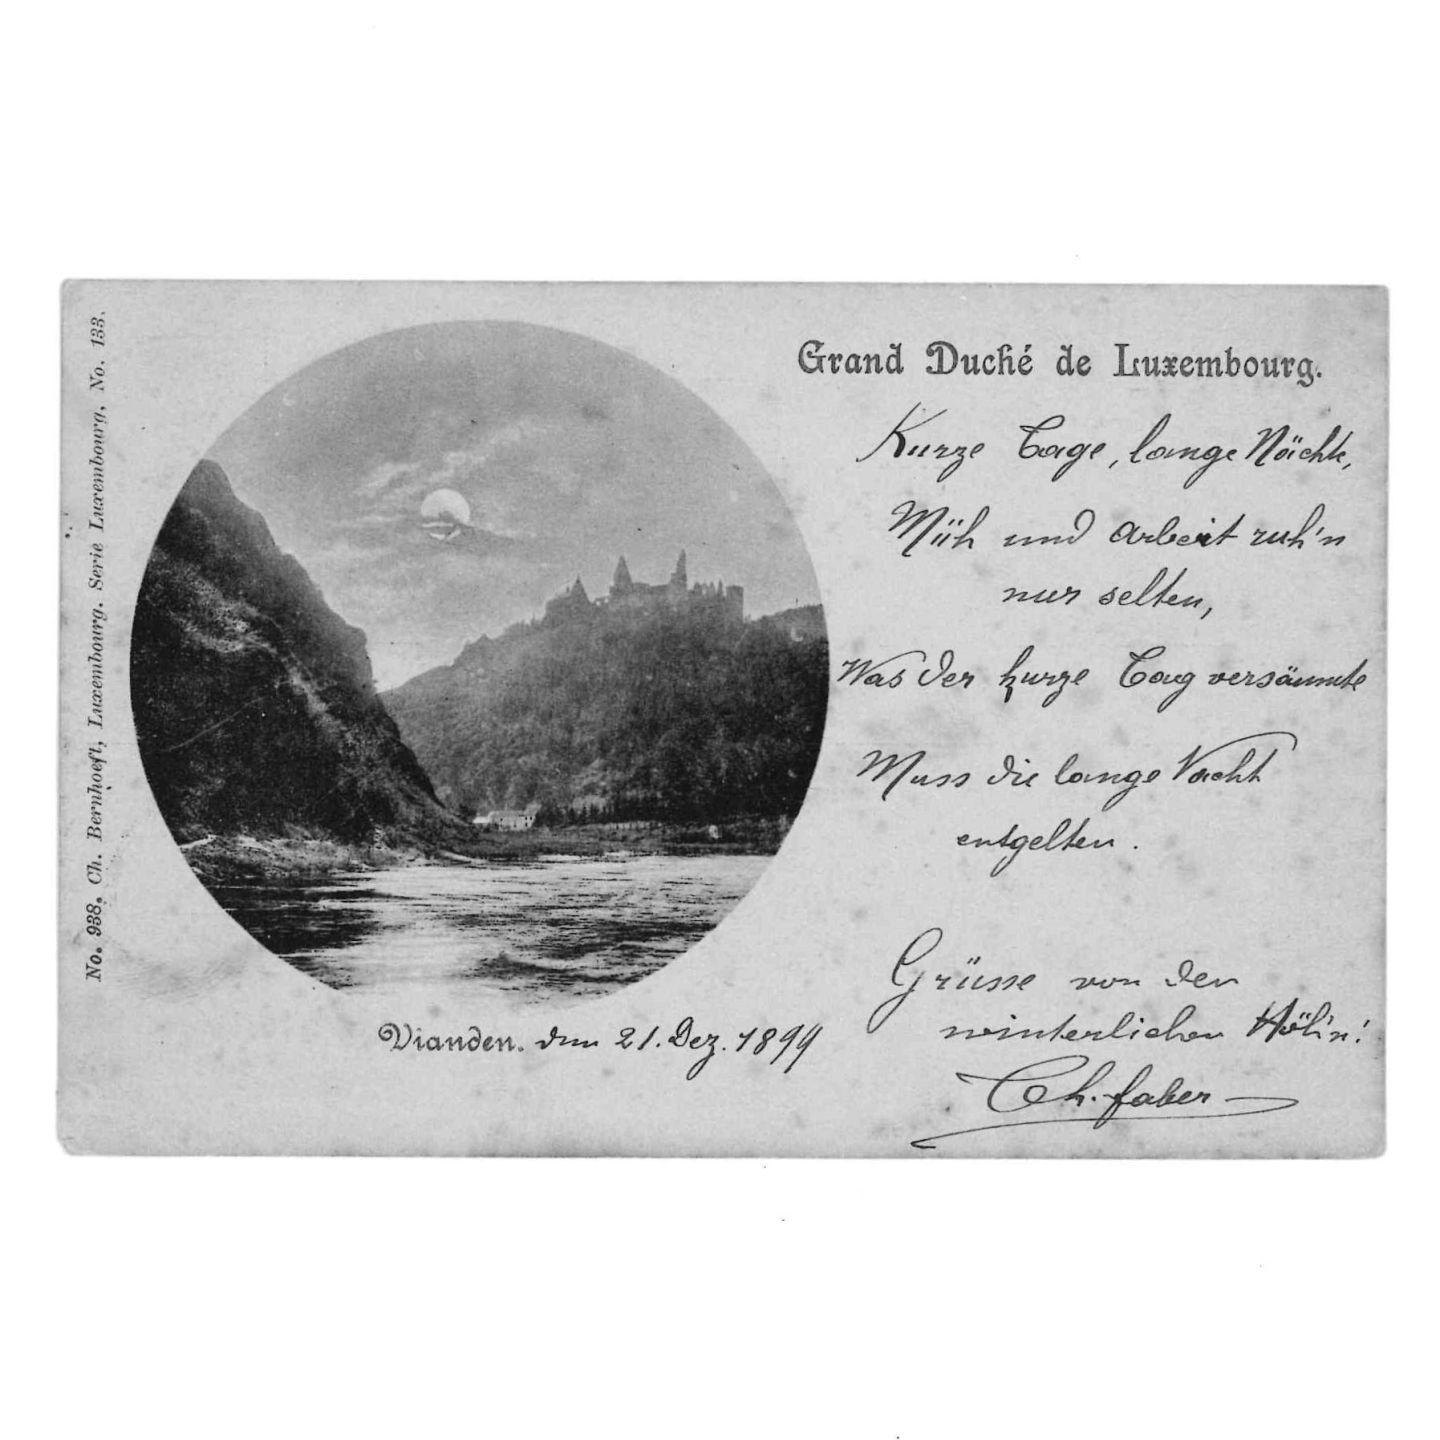 Grand Duché de Luxembourg.
Kurze Tage, lange Nächte,
Müh und Arbeit ruh'n
nur selten,
Was der kurze Tag versäumte
Muss die lange Nacht
entgelten.
Grüsse von den
winterlichen Höh'n!
Ch. Faber
Vianden. den 21. Dez. 1899
No. 938. Ch. Bernhoeft, Luxembourg. Serie Luxembourg. No. 133.